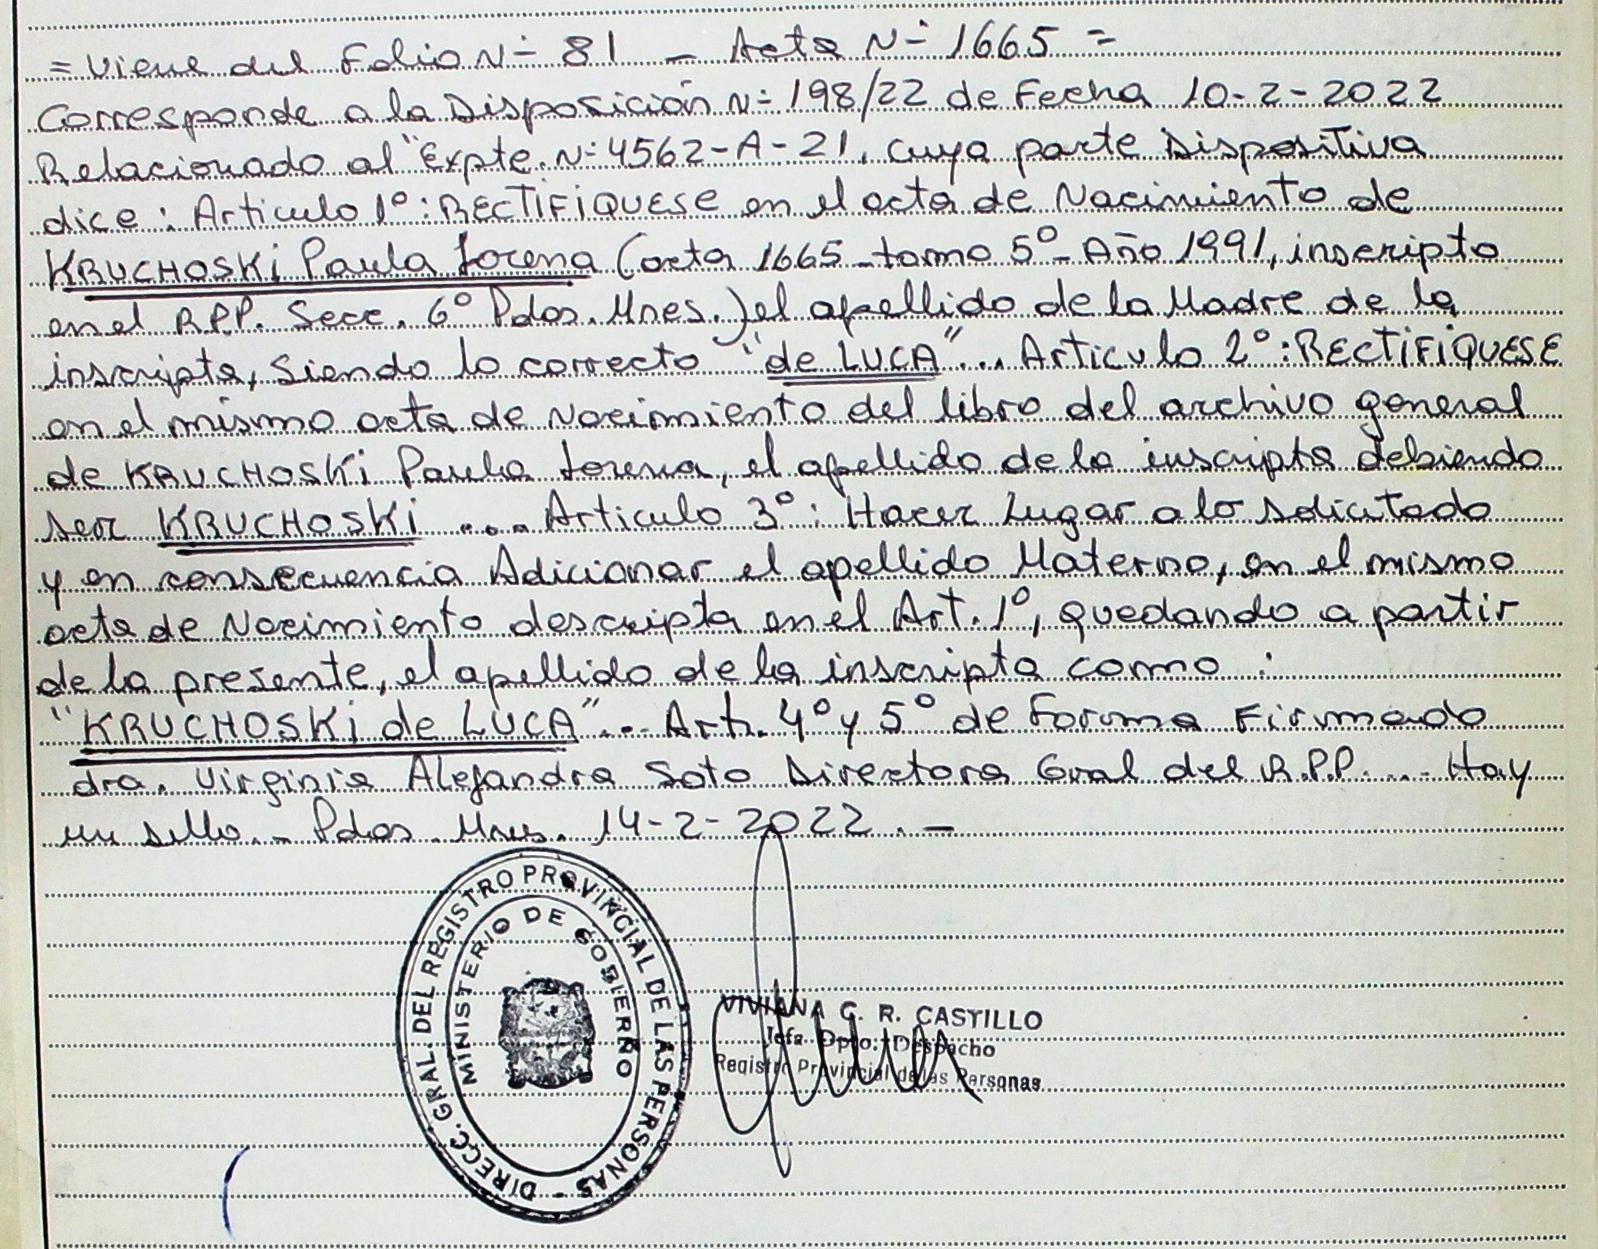 = Viene del Folio N- 81 - Acta N- 1665 =
Corresponde a la Disposición N- 198/22 de Fecha 10-2-2022
Relacionado al "Expte. N- 4562-A-21, cuya parte Dispositiva
dice: Articulo 1º: RECTIFIQUESE en el acta de Nacimiento de
KRUCHOSKi Paula Lorena (acta 1665 - tomo 5º - Año 1991, inscripto
en el R.P.P. Secc. 6º Pdas. Mnes.) el apellido de la Madre de la
inscripta, Siendo lo correcto "de LUCA"... Articulo 2º: RECTIFIQUESE
en el mismo acta de Nacimiento del libro del archivo general
de KRUCHOSKi Paula Lorena, el apellido de la inscripta debiendo
ser KRUCHOSKi .... Articulo 3º: Hacer Lugar a lo Solicitado
y en consecuencia Adicionar el apellido Materno, en el mismo
acta de Nacimiento descripta en el Art. 1º, quedando a partir
de la presente, el apellido de la inscripta como :
"KRUCHOSKi de LUCA"... Art. 4º y 5º de Forma Firmado
dra. Virginia Alejandra Soto Directora Gral del R.P.P. ... Hay
un sello. - Pdas. Mnes. 14-2-2022. -
DIRECC. GRAL. DEL REGISTRO PROVINCIAL DE LAS PERSONAS -
MINISTERIO DE GOBIERNO
VIVIANA C. R. CASTILLO
Jefa Dpto. Despacho
Registro Provincial de las Personas